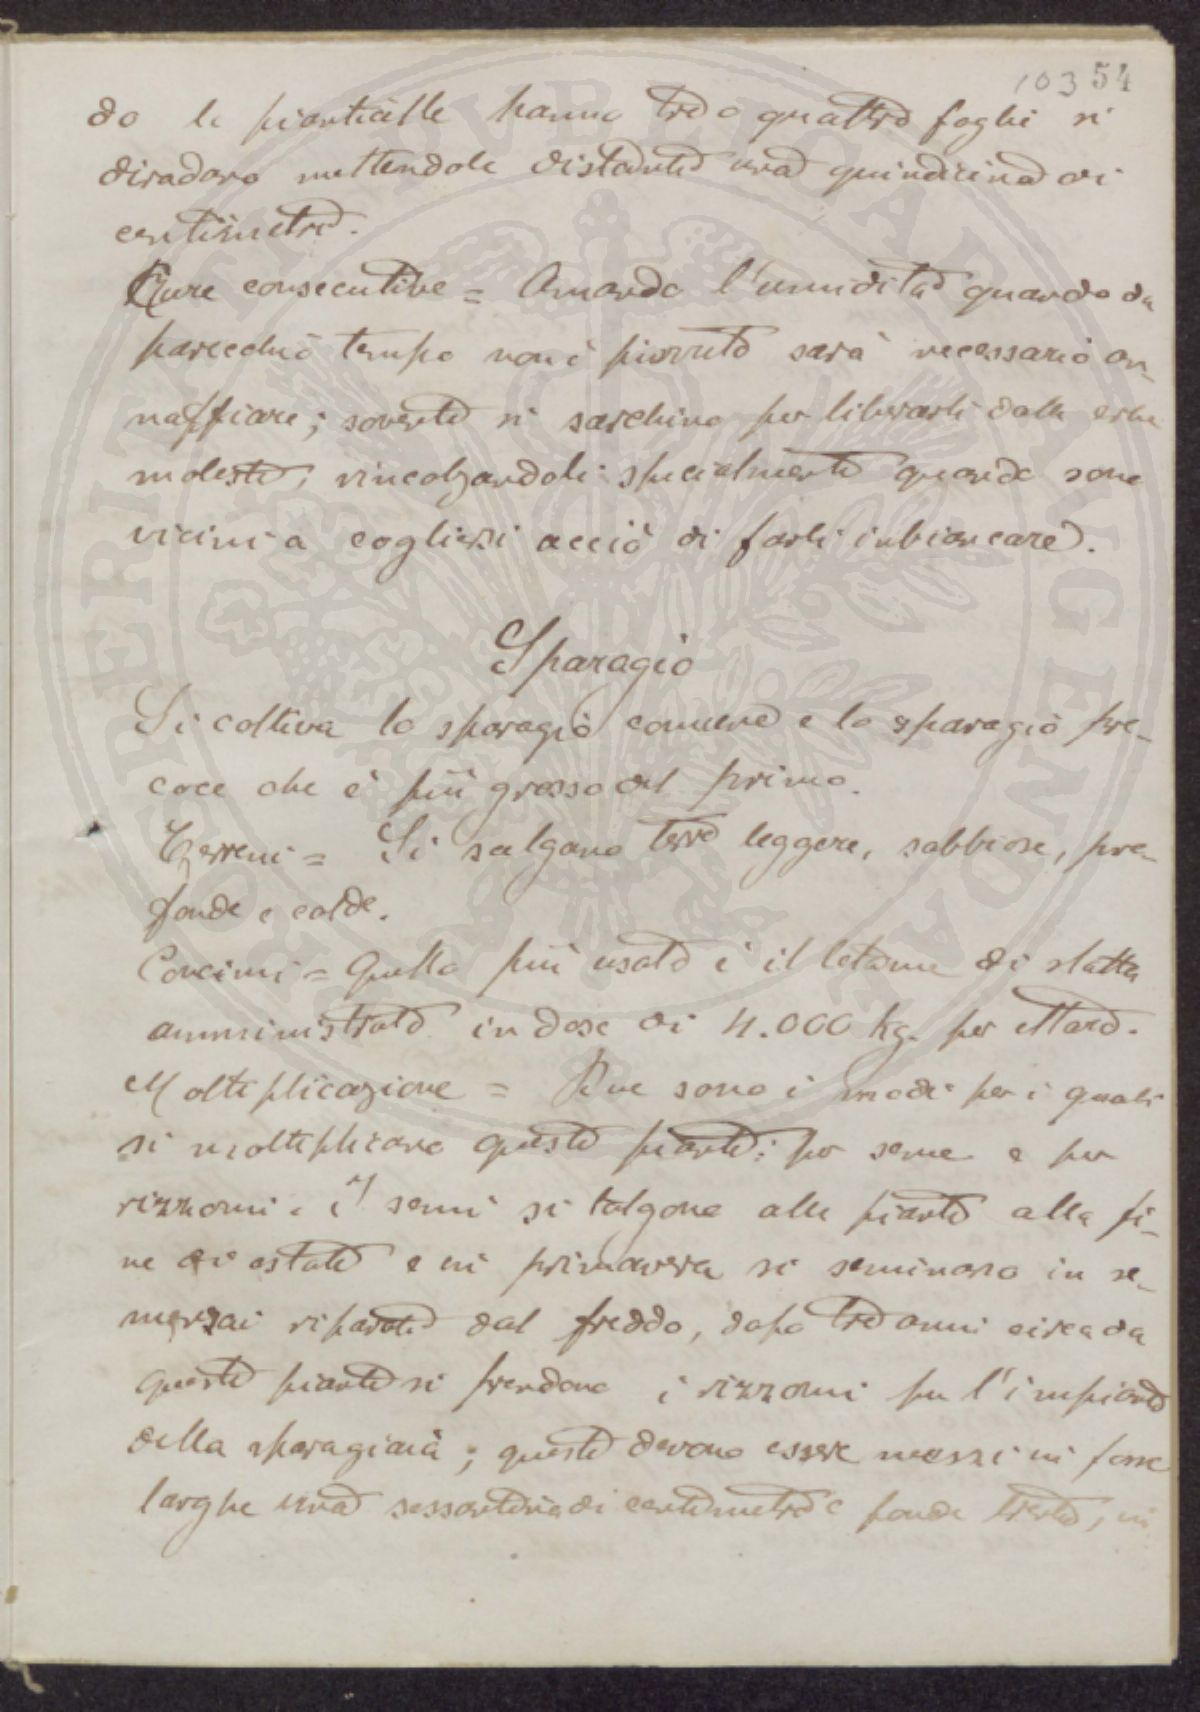 103 54
do le pianticelle hanno tre o quattro foglie si
diradano mettendole distante una quindicina di
centimetri.
Cure consecutive = Amando l'umidità quando da
parecchio tempo non è piovuto sarà necessario an-
naffiare; sovente si sarchino per liberarli dalle erbe
moleste, rincalzandoli specialmente quando sono
vicini a cogliersi acciò di farli inbiancare.
Sparagio
Si coltiva lo sparagio comune e lo sparagio pre-
coce che è più grosso del primo.
Terreni = Si scelgano terre leggere, sabbiose, pro-
fonde e calde.
Concimi = Quello più usato è il letame di stalla
amministrato in dose di 4.000 kg. per ettaro.
Molteplicazione = Due sono i modi per i quali
si molteplicano queste piante: per seme e per
rizzomi. I semi si tolgono alle piante alla fi-
ne di estate e in primavera si seminano in se-
menzai riparati dal freddo, dopo tre anni circa da
queste piante si prendono i rizzomi per l'impianto
della sparagiaia; questi devono essere messi in fosse
larghe una sessantina di centimetri e fonde trenta, in